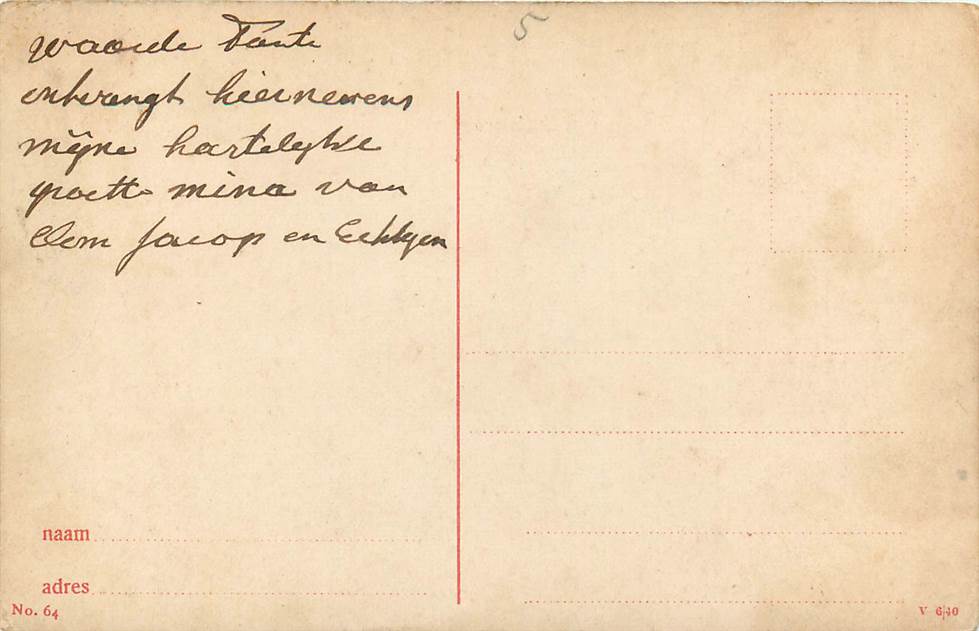 5
waarde Tante
ontvangt hiernevens
mijne hartelijke
groette mina van
Oom Jacop en
naam
adres
No. 64
V 6/10